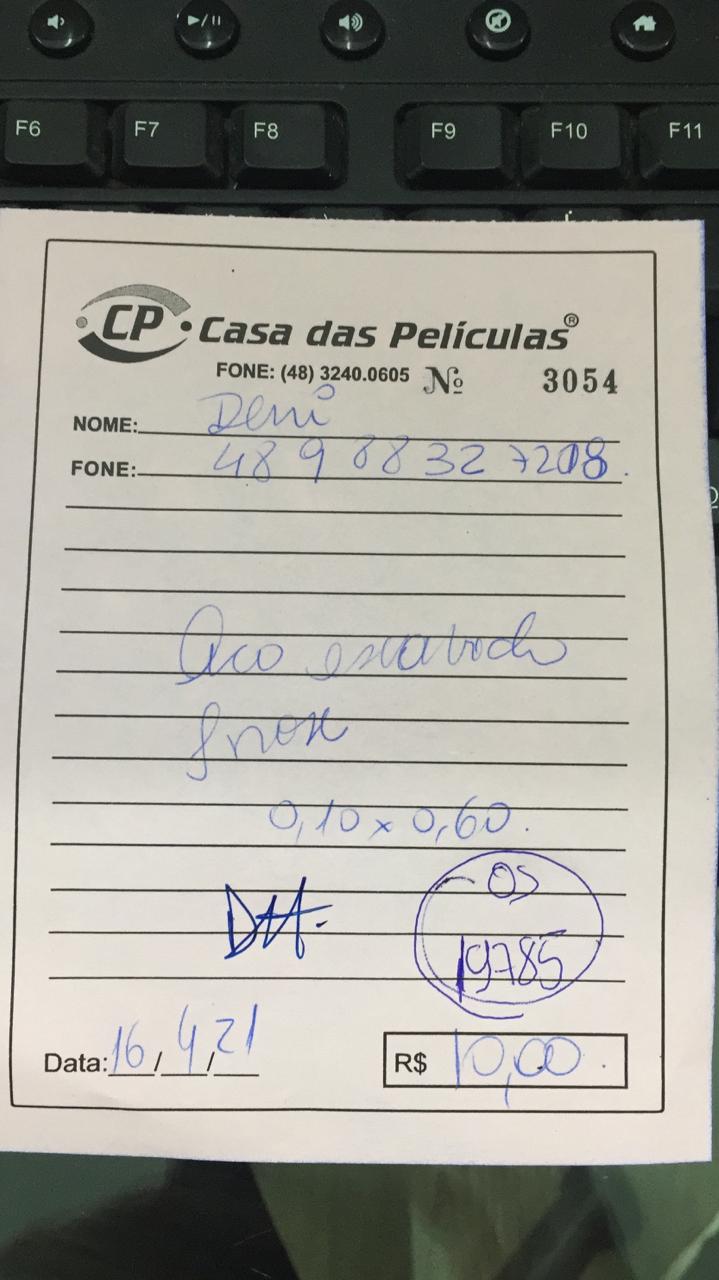 F6 F7 F8 F9 F10 F11
CP Casa das Películas®
FONE: (48) 3240.0605 Nº 3054
NOME: Deni
FONE: 48 9 88 32 7208.
Aço escovado
Inox
0,10 x 0,60.
OS
19785
Data: 16/4/21 R$ 10,00.